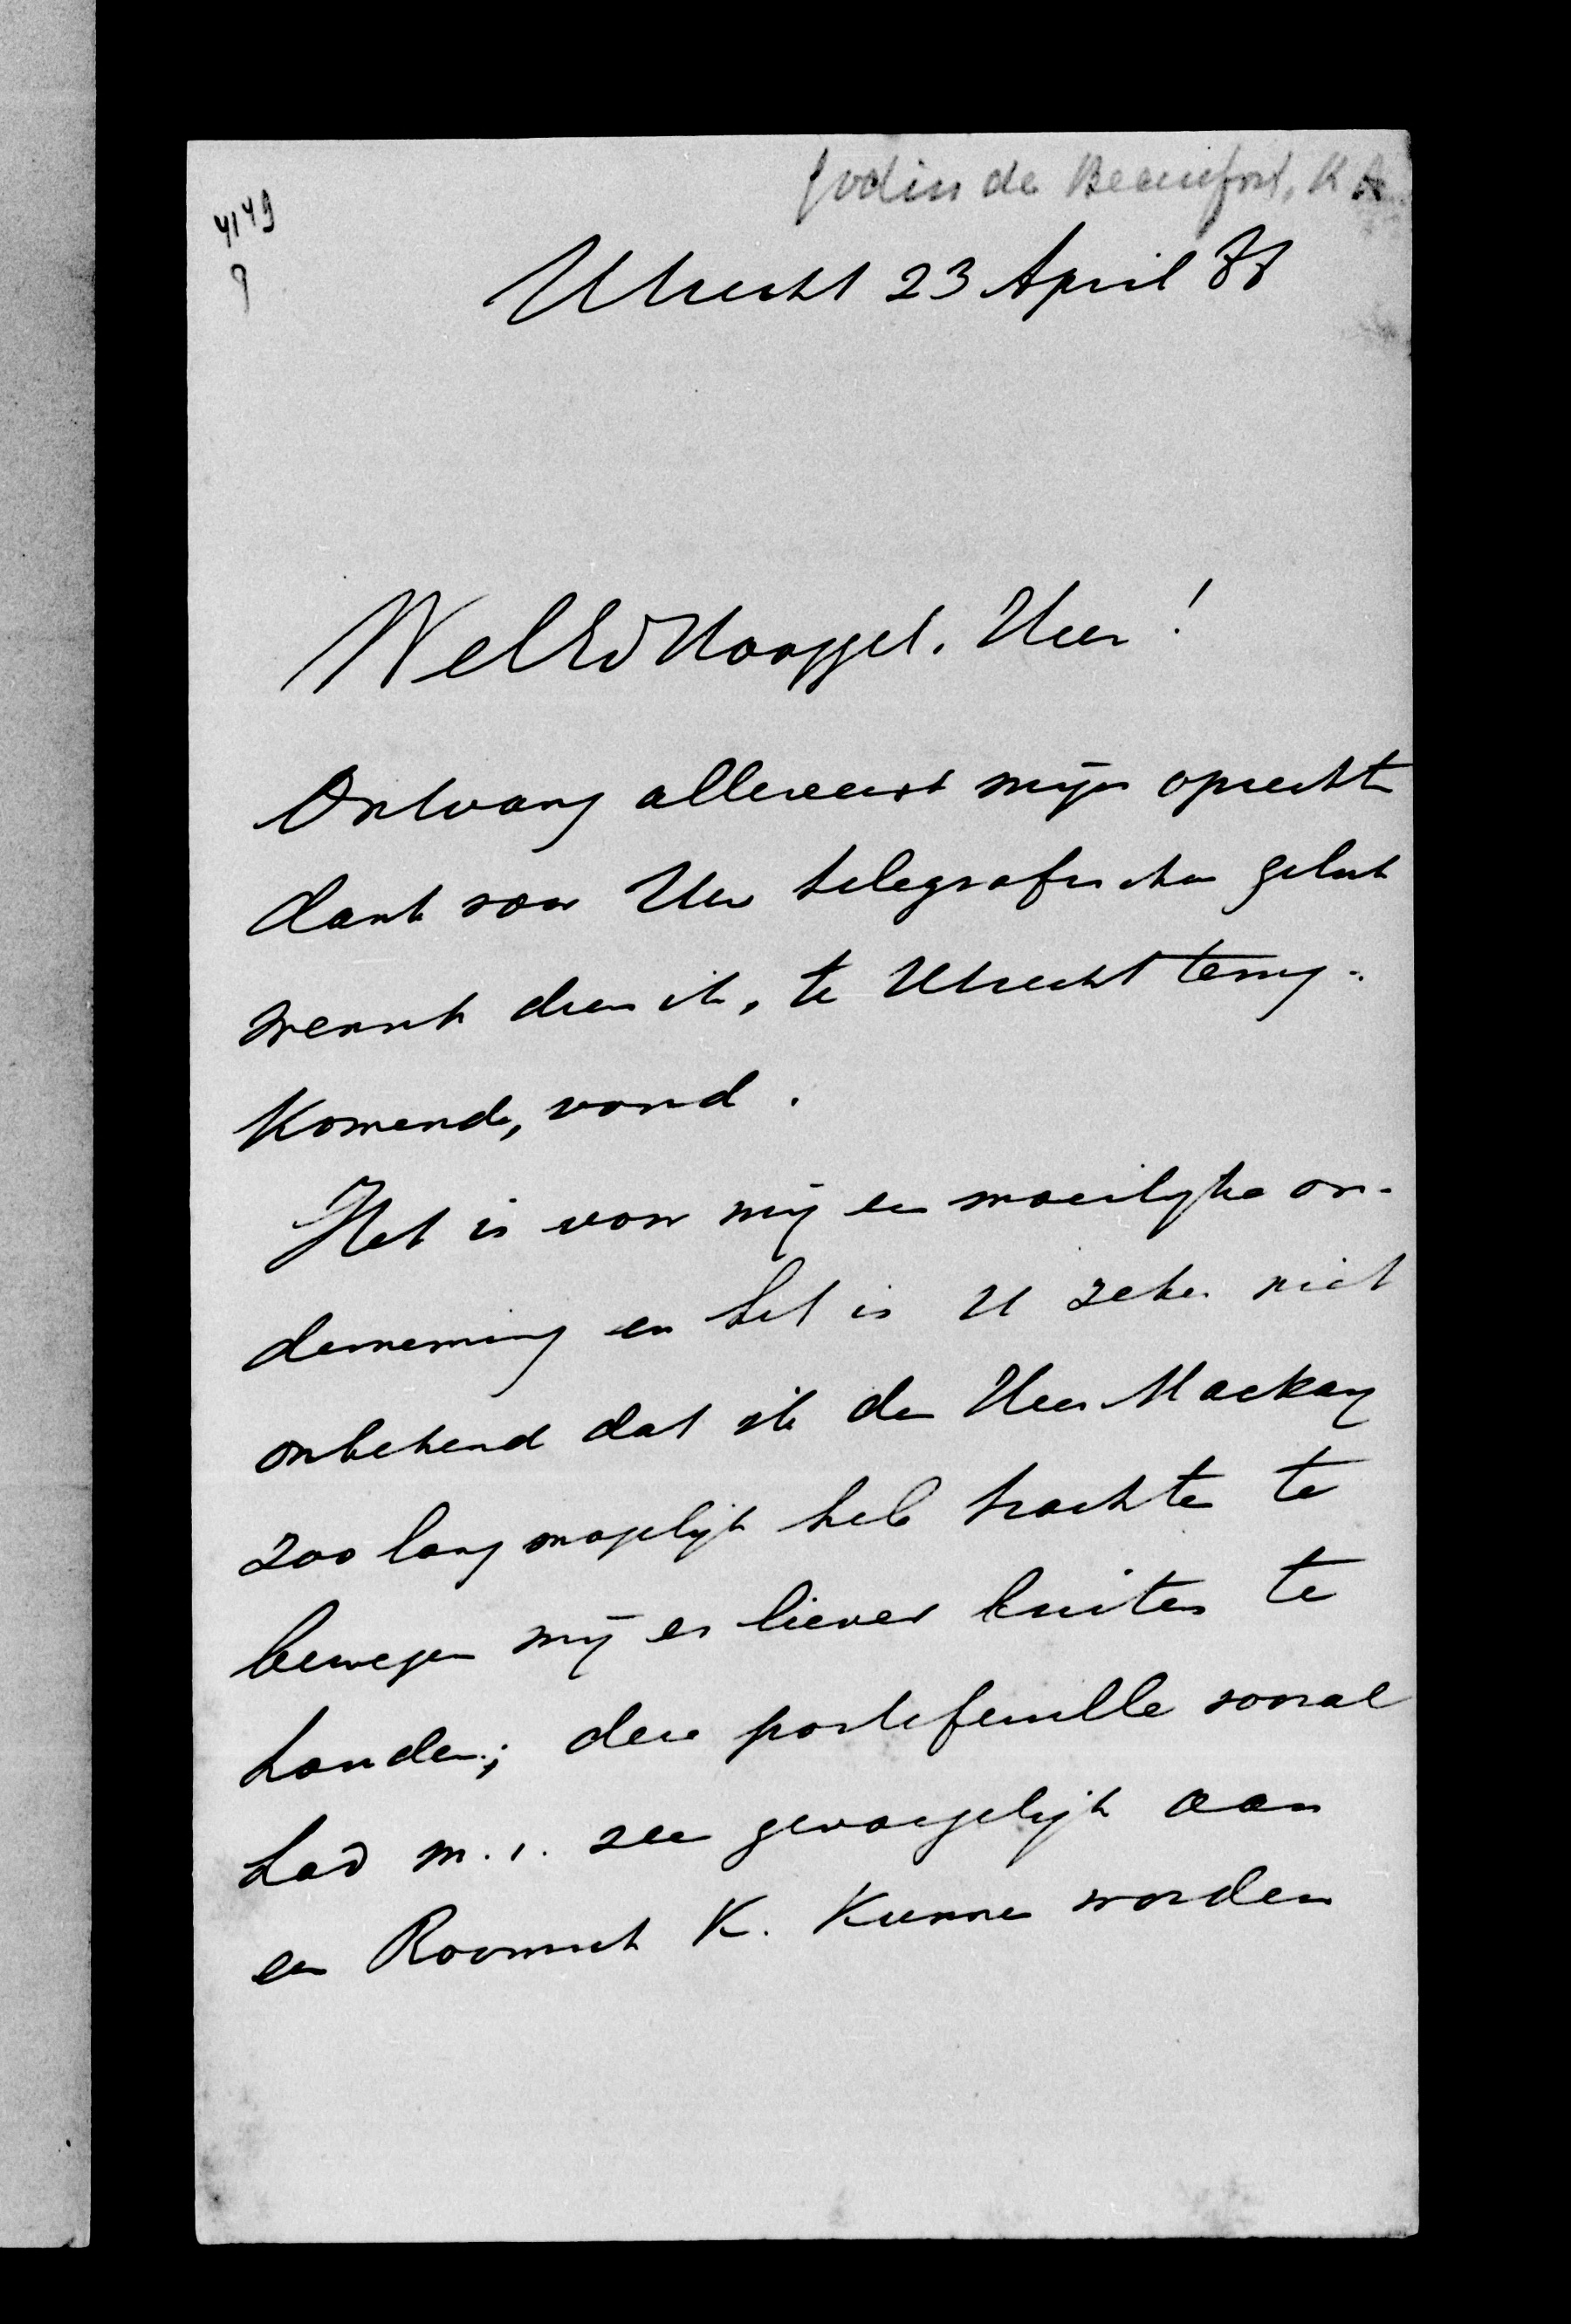 Godin de Beaufort, K A.
4149
9
Utrecht 23 April 88
WelEdHooggel. Heer!
Ontvang allereerst mijn oprechten
dank voor Uw telegrafischen geluk
wensch dien ik, te Utrecht terug-
komende, vond.
Het is voor mij een moeilijke on-
derneming en het is U zeker niet
onbekend dat ik den Heer Mackay
zoo lang mogelijk heb trachten te
bewegen mij er liever buiten te
houden; deze portefeuille vooral
had m.i. zeer gevoegelijk aan
een Roomsch K. kunnen worden